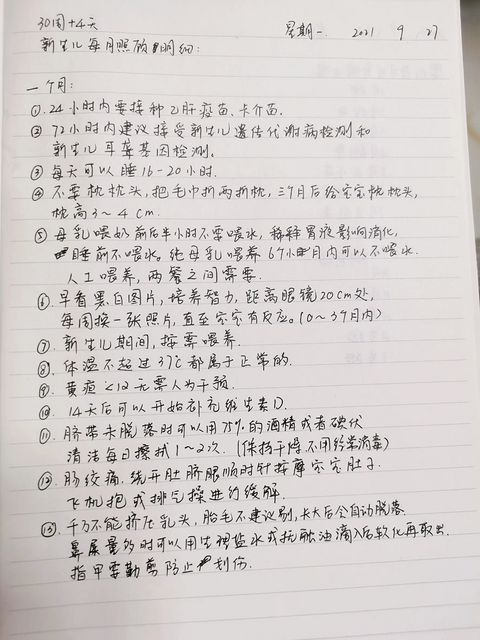 30周+4天
星期一 2021 9 27
新生儿每月照顾明细:
一个月:
①.24小时内要接种乙肝疫苗、卡介苗.
②72小时内建议接受新生儿遗传代谢病检测和
新生儿耳聋基因检测。
③每天可以睡16-20小时.
④不要枕枕头,把毛巾折两折枕,三个月后给宝宝枕枕头,
枕高3~4cm.
⑤母乳喂奶前后半小时不要喂水,稀释胃液影响消化,
睡前不喂水。纯母乳喂养6个月内可以不喂水.
人工喂养,两餐之间需要.
⑥早看黑白图片,培养智力,距离眼镜20cm处,
每周换一张照片,直至宝宝有反应。(0~3个月内)
⑦.新生儿期间,按需喂养.
⑧.体温不超过37℃都属于正常的.
⑨.黄疸<12无需人为干预.
⑩.14天后可以开始补充维生素D.
⑪.脐带未脱落时可以用75%的酒精或者碘伏
清洁每日擦拭1~2次.(保持干燥不用经常消毒)
⑫.肠绞痛.绕开肚脐眼顺时针按摩宝宝肚子.
飞机抱或排气操进行缓解.
⑬.千万不能挤压乳头,胎毛不建议剔,长大后会自动脱落
鼻屎量多时可以用生理盐水或抚触油滴入后软化再取出.
指甲要勤剪防止划伤.